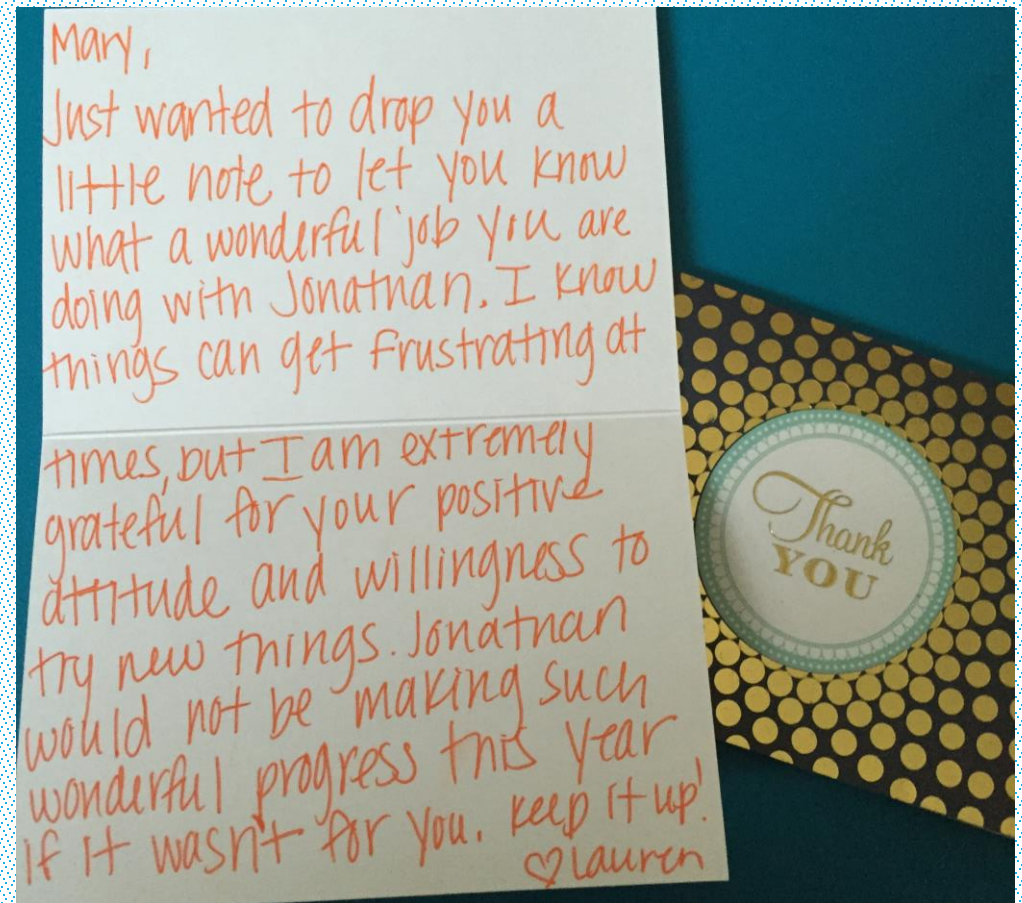 Mary,
Just wanted to drop you a
little note to let you know
what a wonderful job you are
doing with Jonathan. I know
things can get frustrating at
times, but I am extremely
grateful for your positive
attitude and willingness to
try new things. Jonathan
would not be making such
wonderful progress this year
if it wasn't for you. Keep it up!
♡Lauren
Thank
YOU